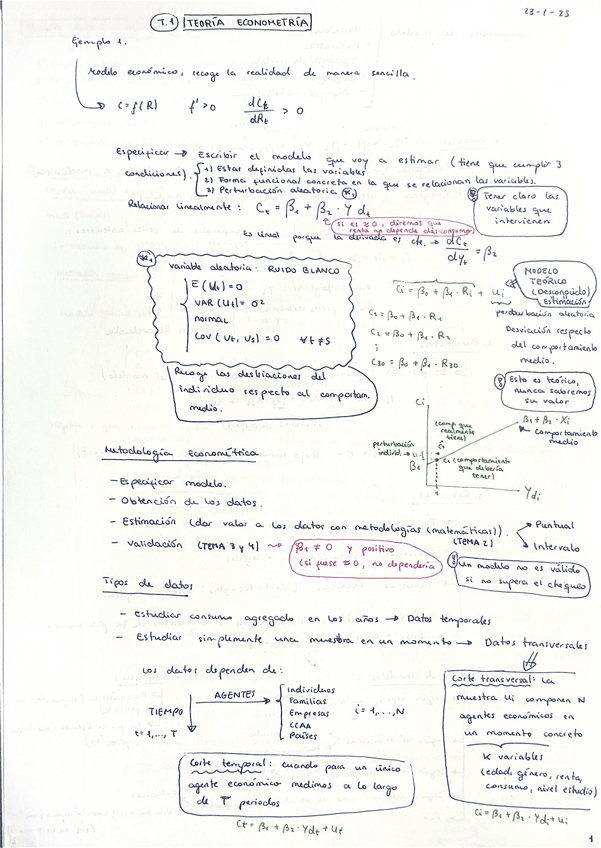 23-1-25
T.1 TEORÍA ECONOMETRÍA
Ejemplo 1.
Modelo económico, recoge la realidad de manera sencilla.
C = f(R) f' > 0 dCt/dRt > 0
Especificar → Escribir el modelo que voy a estimar (tiene que cumplir 3
condiciones).
1) Estar definidas las variables
2) Forma funcional concreta en la que se relacionan las variables.
3) Perturbación aleatoria
Tener claro las
variables que
intervienen
Relacionar linealmente: Ct = β1 + β2 · Y dt
si es ≈ 0, diremos que
renta no depende del consumo
Es lineal porque la derivada es cte. → dCt/dyt = β2
variable aleatoria: RUIDO BLANCO
E (Ut) = 0
VAR (Ut) = σ²
normal
COV (Ut, Us) = 0 ∀ t ≠ s
Recoge las desviaciones del
individuo respecto al comportam.
medio.
Ci = β0 + β1 · Ri + Ui
MODELO
TEÓRICO
(Desconocido)
Estimación
C1 = β0 + β1 · R1
C2 = β0 + β1 · R2
⋮
C30 = β0 + β1 · R30
perturbación aleatoria
Desviación respecto
del comportamiento
medio.
Esto es teórico,
nunca sabremos
su valor
Ci
(comp. que
realmente
tiene)
perturbación
individ.
β1
(comportamiento
que debería
tener)
β1 + β2 · Xi
comportamiento
medio
1
Ydi
Metodología Econométrica
- Especificar modelo.
- Obtención de los datos.
- Estimación (dar valor a los datos con metodologías (matemáticas)). (TEMA 2)
Puntual
Intervalo
- Validación (TEMA 3 y 4)
β1 ≠ 0 y positivo
(si fuese ≈ 0, no dependería
Un modelo no es válido
si no supera el chequeo
Tipos de datos
- Estudiar consumo agregado en los años → Datos temporales
- Estudiar simplemente una muestra en un momento → Datos transversales
Los datos dependen de:
AGENTES
TIEMPO
t = 1, ..., T
Individuos
Familias
Empresas
CCAA
Países
i = 1, ..., N
Corte transversal: la
muestra Ui componen N
agentes económicos en
un momento concreto
K variables
(edad, género, renta,
consumo, nivel estudio)
Ci = β1 + β2 · Ydi + Ui
Corte temporal: cuando para un único
agente económico medimos a lo largo
de T periodos
Ct = β1 + β2 · Ydt + Ut
1